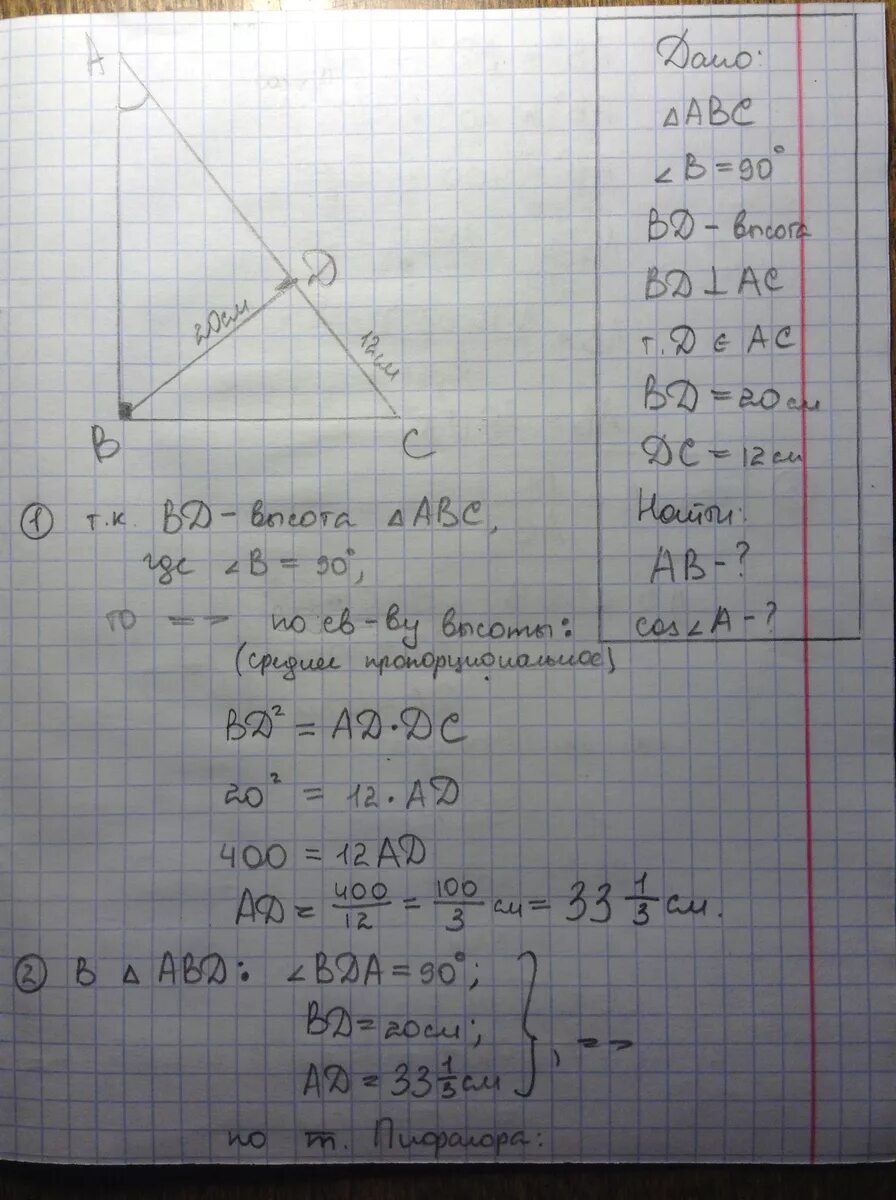 A
D
20см
12см
B
C
Дано:
△ABC
∠B = 90°
BD - высота
BD ⊥ AC
т. D ∈ AC
BD = 20см
DC = 12см
Найти:
AB - ?
cos∠A - ?
① т.к. BD - высота △ABC,
где ∠B = 90°,
то => по св-ву высоты:
(среднее пропорциональное)
BD² = AD · DC
20² = 12 · AD
400 = 12AD
AD = 400/12 = 100/3 см = 33 1/3 см.
② В △ABD: ∠BDA = 90°;
BD = 20см;
AD = 33 1/3 см }, =>
по т. Пифагора: